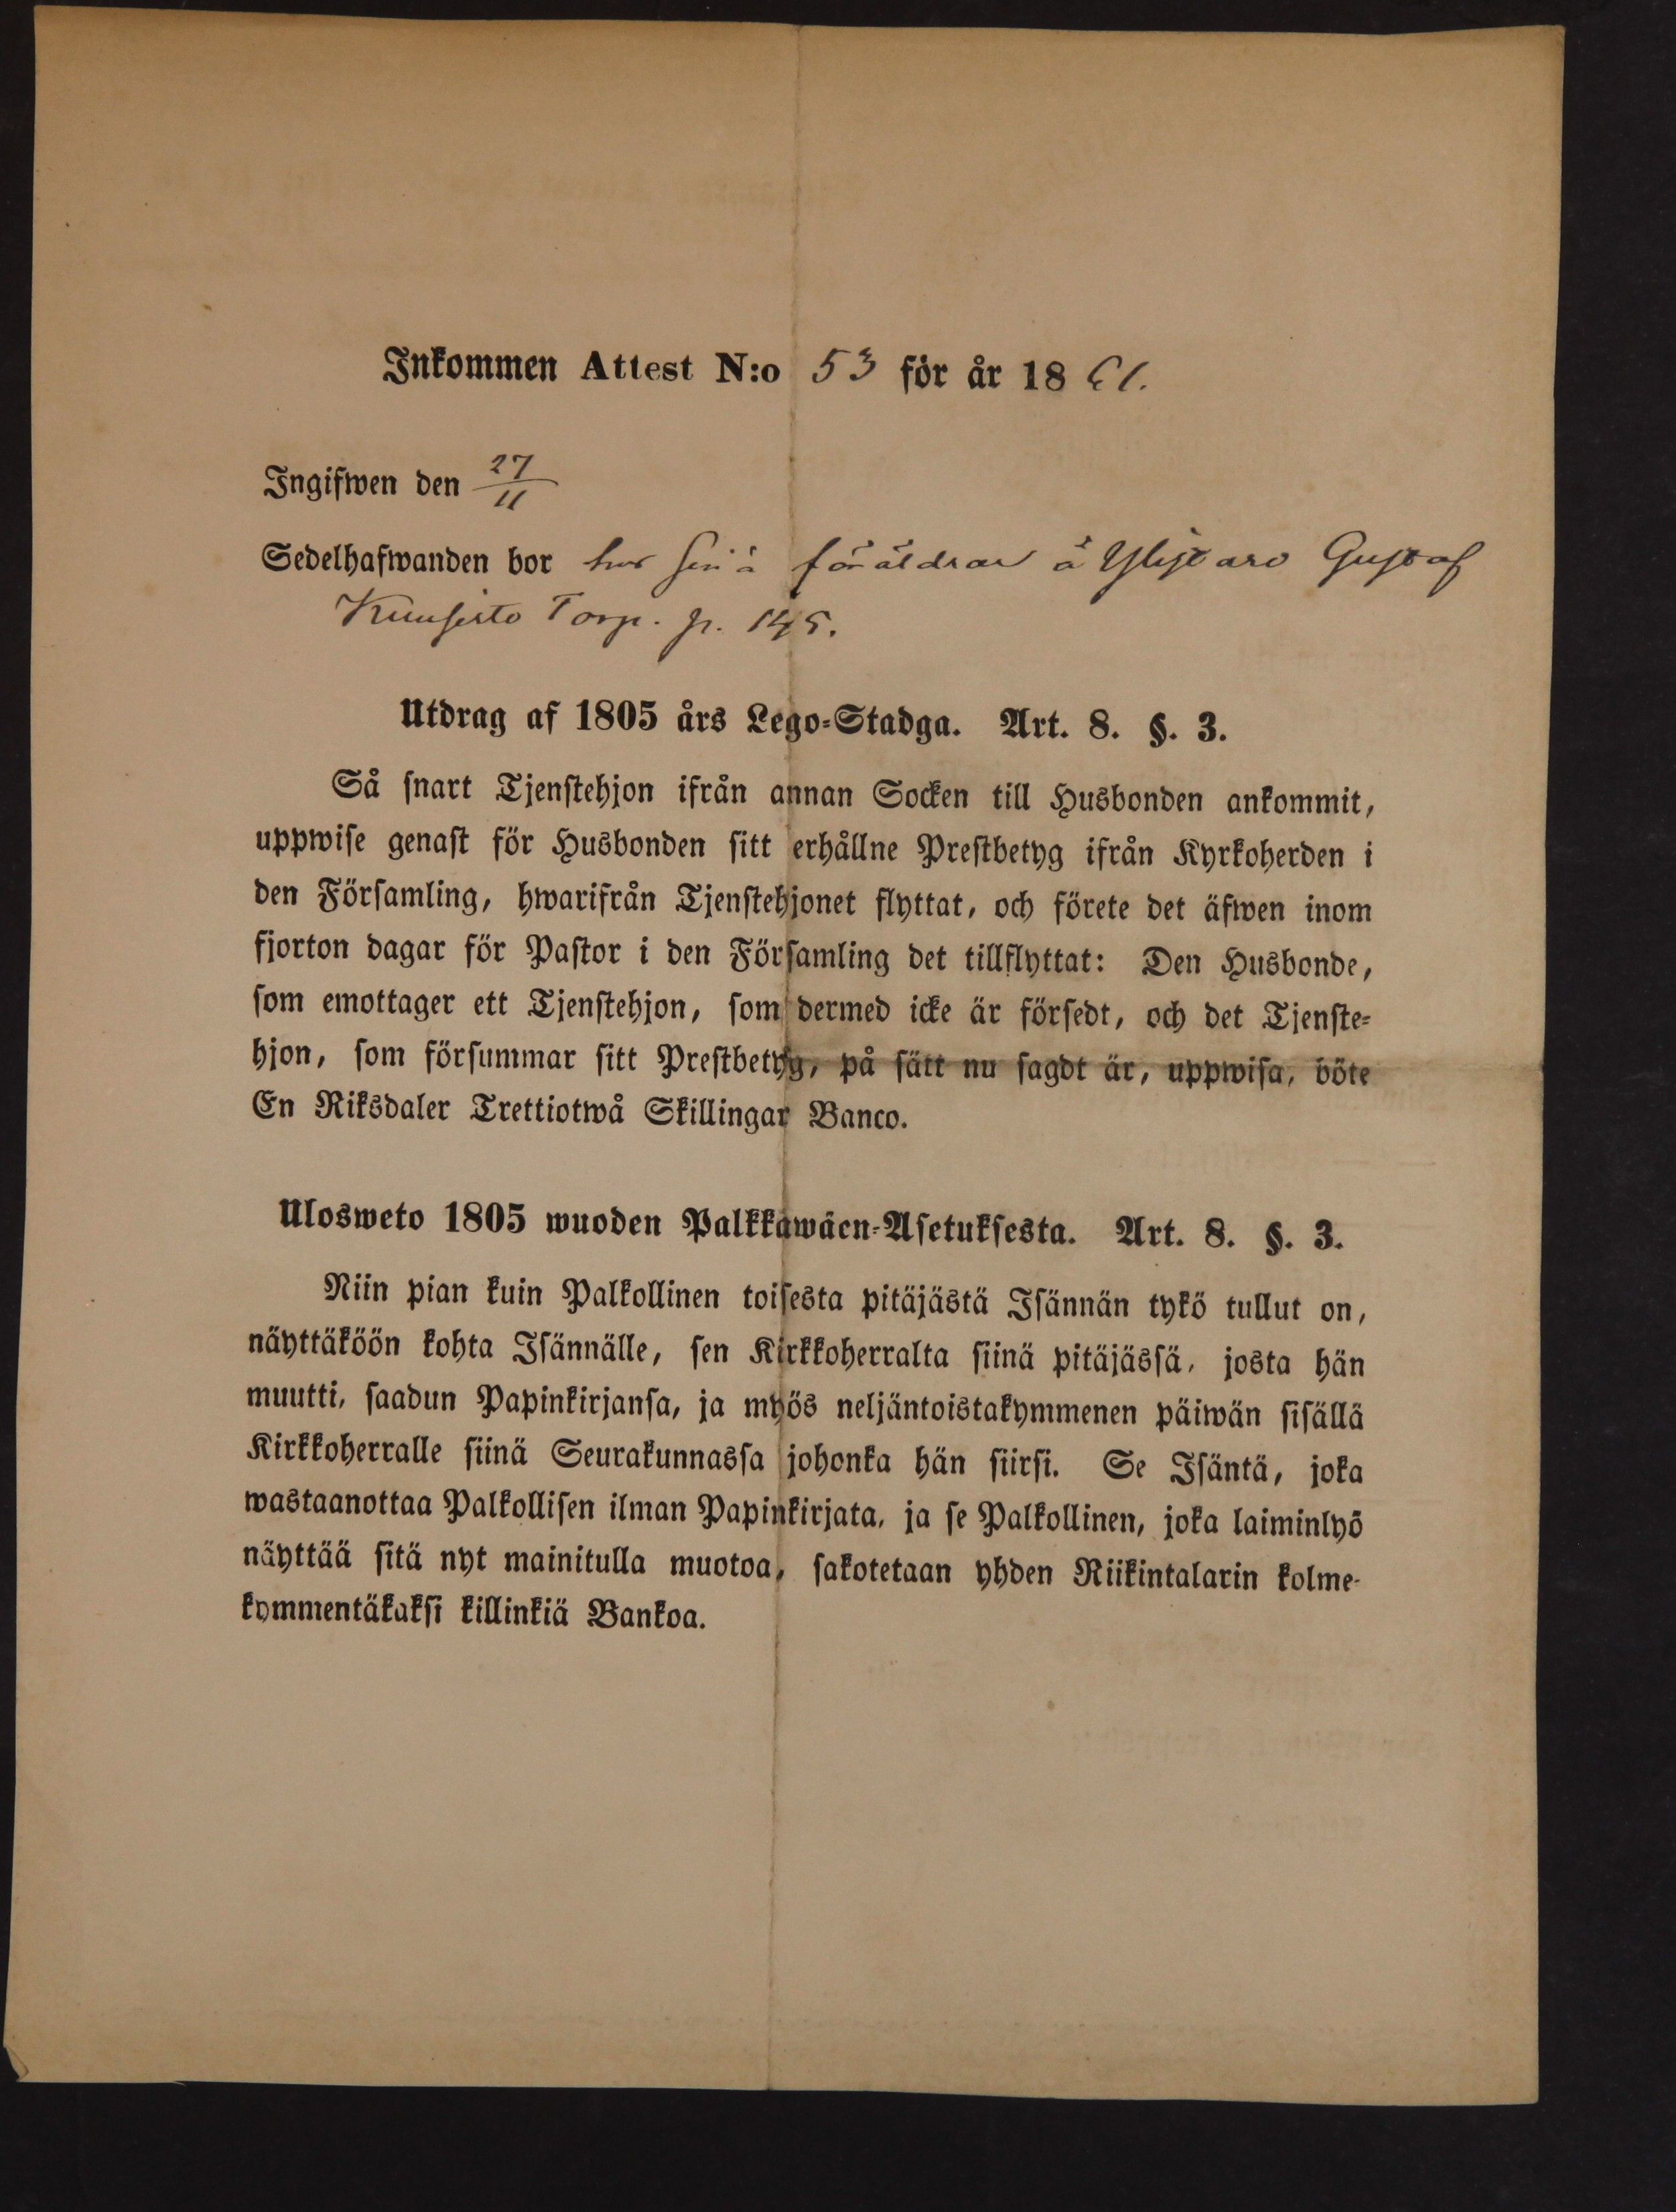 Inkommen Attest N:o 53 för år 1861.
Ingifwen den 27/11
Sedelhafwanden bor hos sina föräldrar å Ylistaro Gustaf
Kuusisto Torp. p. 145.
Utdrag af 1805 års Lego-Stadga. Art. 8. §. 3.
Så snart Tjenstehjon ifrån annan Socken till Husbonden ankommit,
uppwise genast för Husbonden sitt erhållne Prestbetyg ifrån Kyrkoherden i
den Församling, hwarifrån Tjenstehjonet flyttat, och förete det äfwen inom
fjorton dagar för Pastor i den Församling det tillflyttat: Den Husbonde,
som emottager ett Tjenstehjon, som dermed icke är försedt, och det Tjenste-
hjon, som försummar sitt Prestbetyg, på sätt nu sagdt är, uppwisa, böte
En Riksdaler Trettiotwå Skillingar Banco.
Ulosweto 1805 wuoden Palkkawäen-Asetuksesta. Art. 8. §. 3.
Niin pian kuin Palkollinen toisesta pitäjästä Isännän tykö tullut on,
näyttäköön kohta Isännälle, sen Kirkkoherralta siinä pitäjässä, josta hän
muutti, saadun Papinkirjansa, ja myös neljäntoistakymmenen päiwän sisällä
Kirkkoherralle siinä Seurakunnassa johonka hän siirsi. Se Isäntä, joka
wastaanottaa Palkollisen ilman Papinkirjata, ja se Palkollinen, joka laiminlyö
näyttää sitä nyt mainitulla muotoa, sakotetaan yhden Riikintalarin kolme-
kymmentäkaksi killinkiä Bankoa.